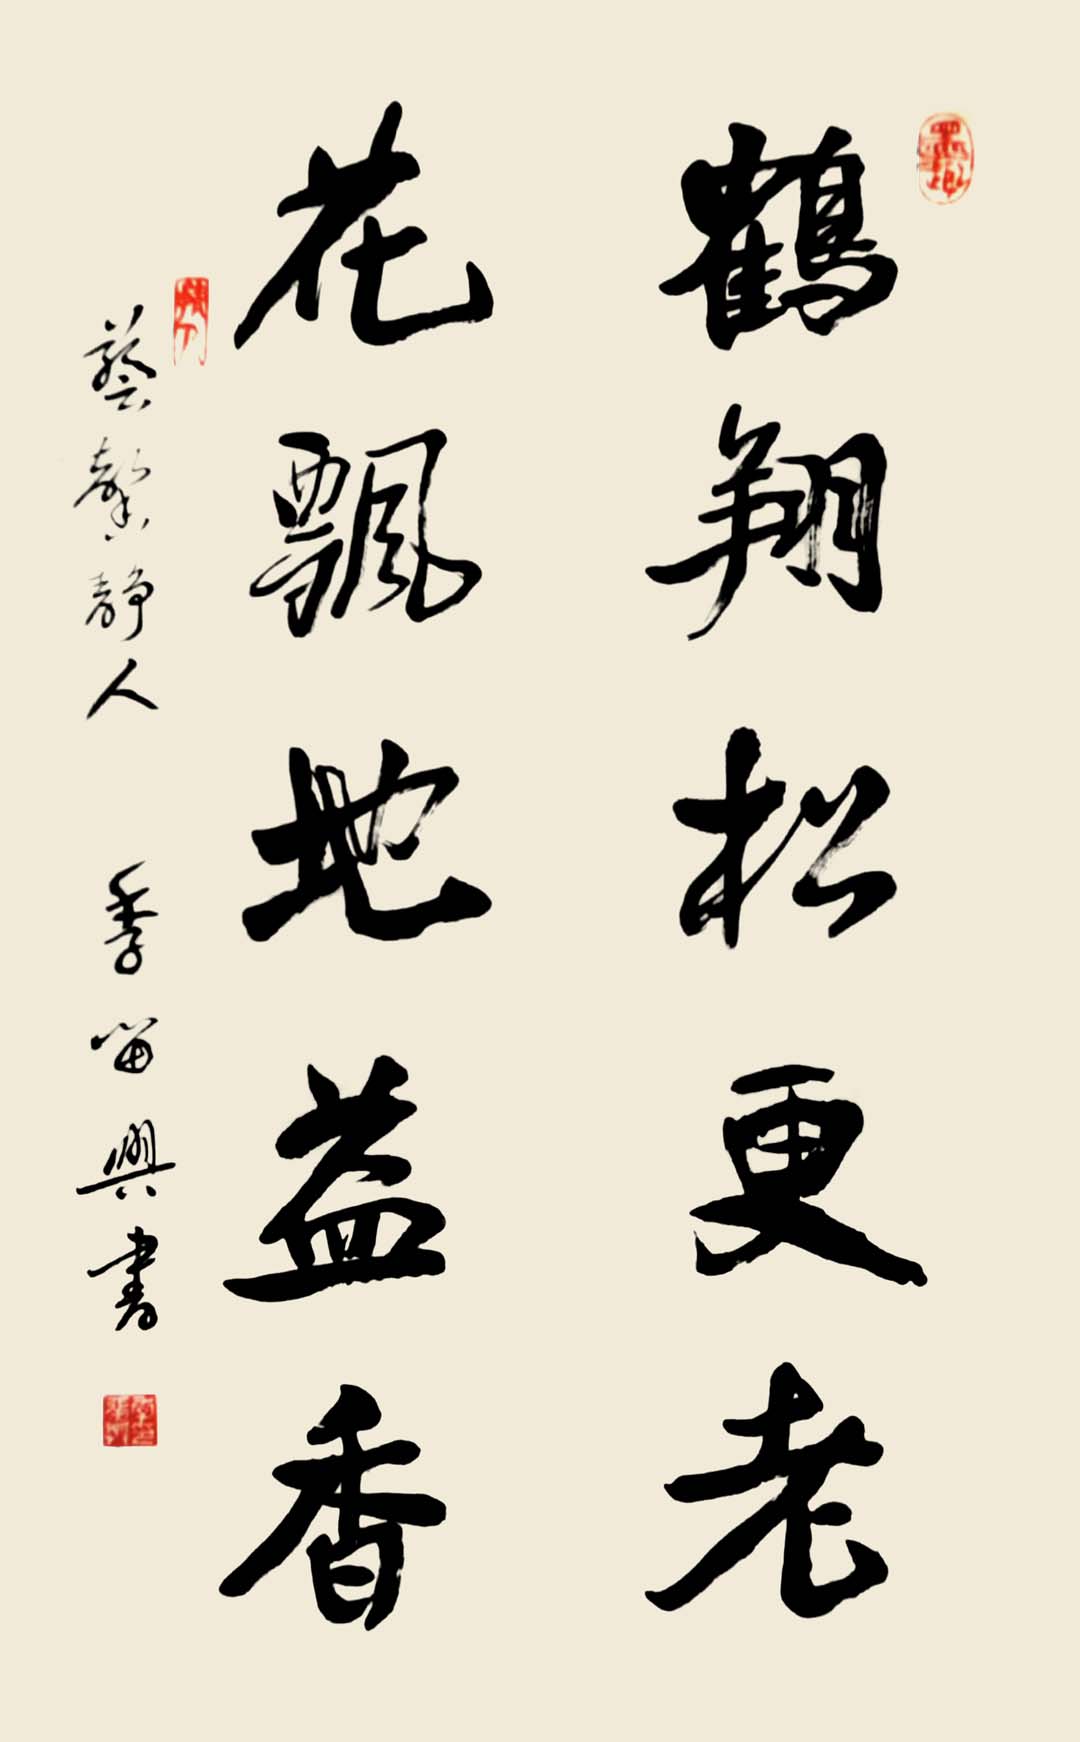 鶴翔松更老
花飄地益香
藝馨靜人 季留興書